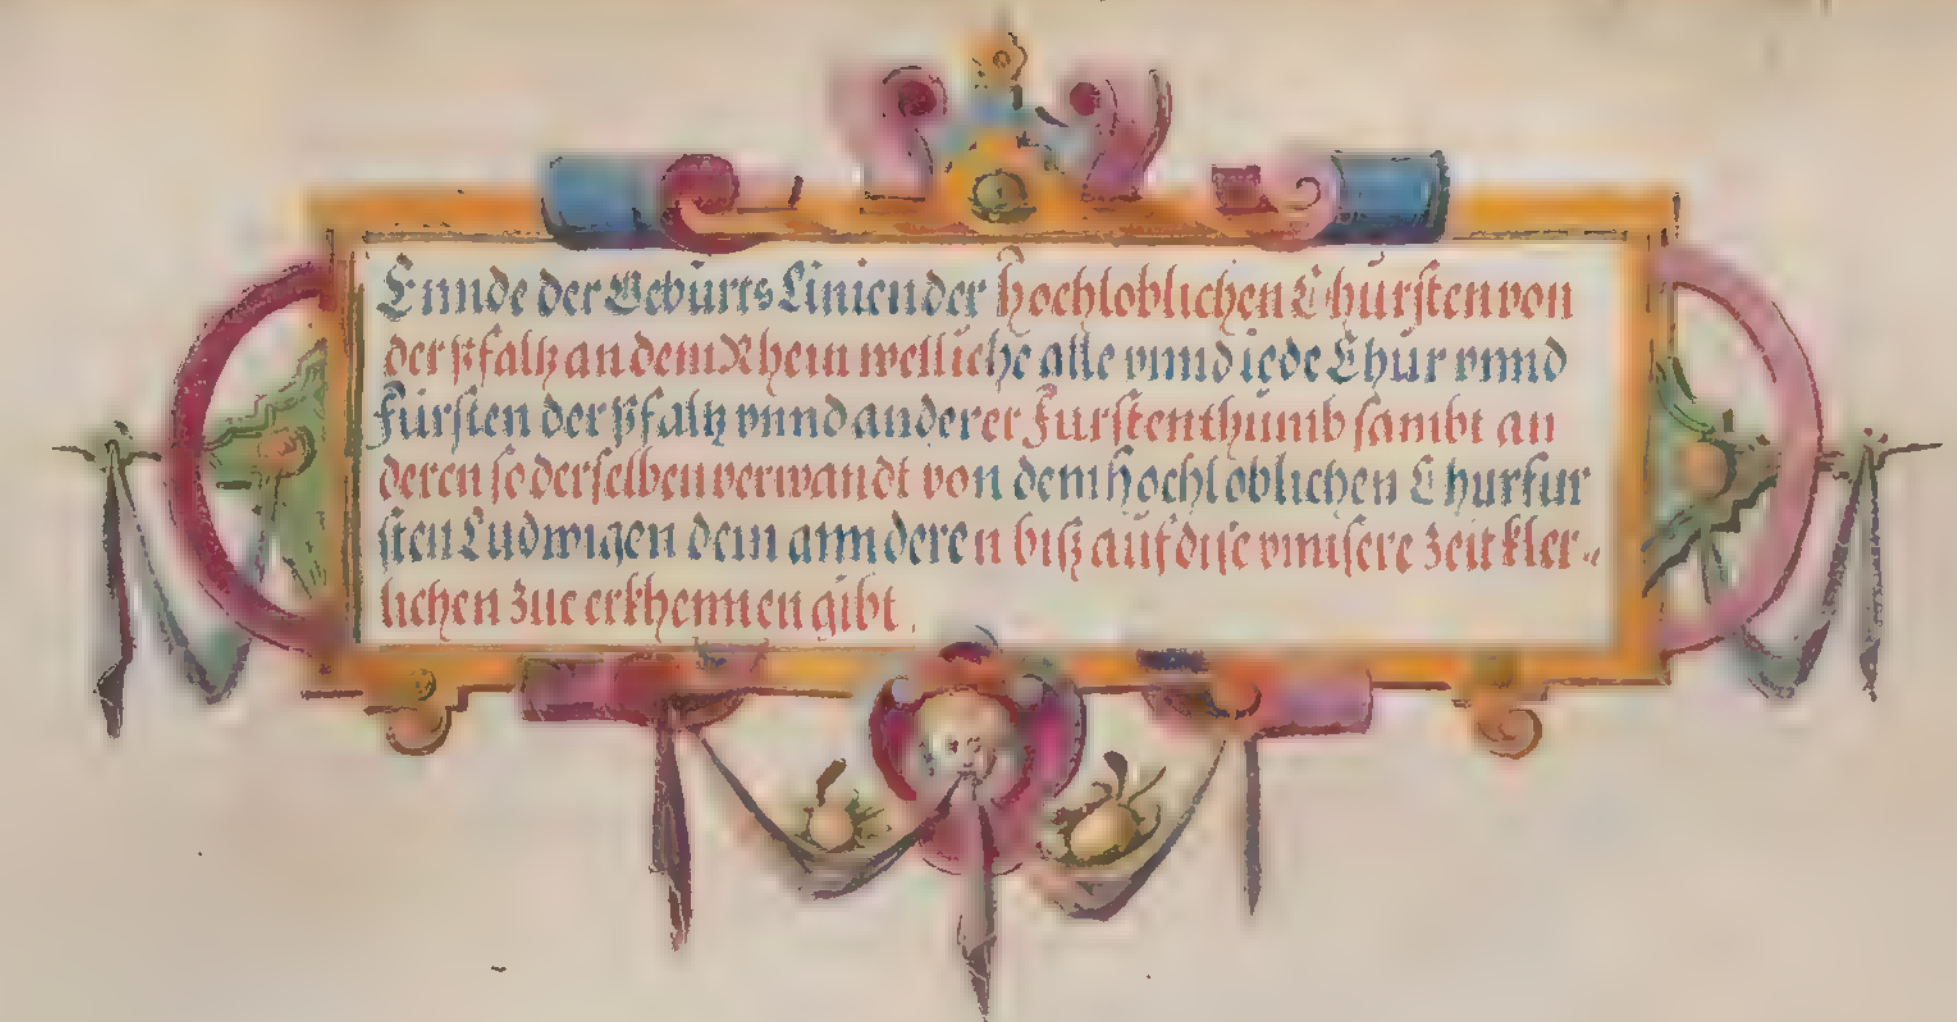 Ennde der Gebúrts Linien der hochloblichen Chúrfúrsten von
der pfaltz an dem Rhein welliche alle vnnd iede Chúr vnnd
fúrsten der pfaltz vnnd anderer Fúrstenthúmb sambt an
deren so derselben verwandt von dem hochloblichen Churfur
sten Ludwigen dem annderen bisz aúf dise vnnsere zeit kler-
lichen zúe erkhennen gibt.